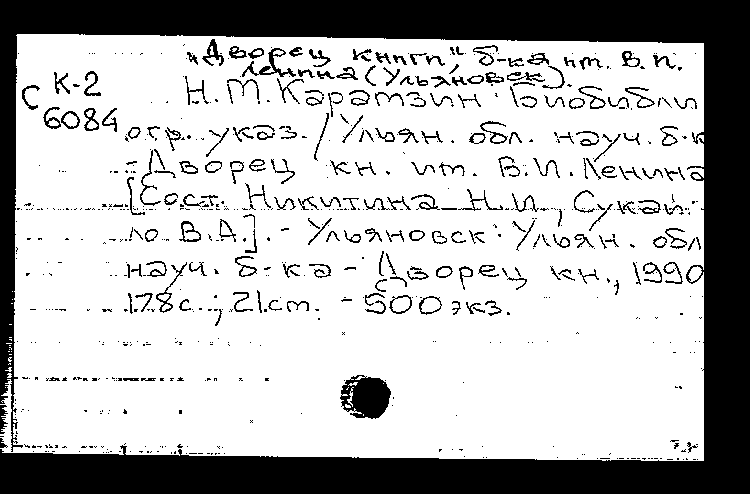 „Дворец книги", б-ка им. В. И.
Ленина (Ульяновск).
С К-2
6084
Н. М. Карамзин: Биобибли
огр. указ. / Ульян. обл. науч. б-к
- Дворец кн. им. В. И. Ленина
[Сост. Никитина Н. И., Сукай-
ло В. А.]. - Ульяновск: Ульян. обл
науч. б-ка - Дворец кн., 1990
178 с.; 21 см. - 500 экз.